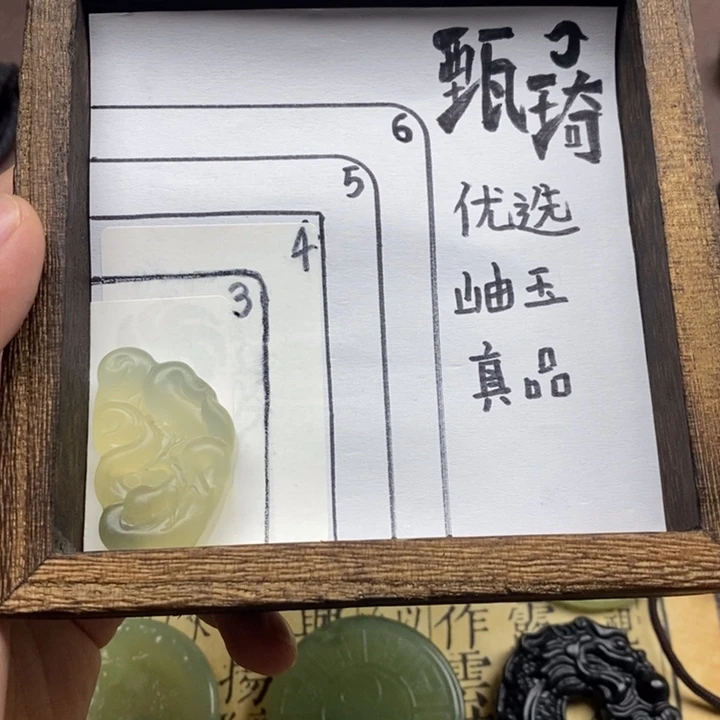 甄琦
优选
岫玉
真品
6
5
4
3
作